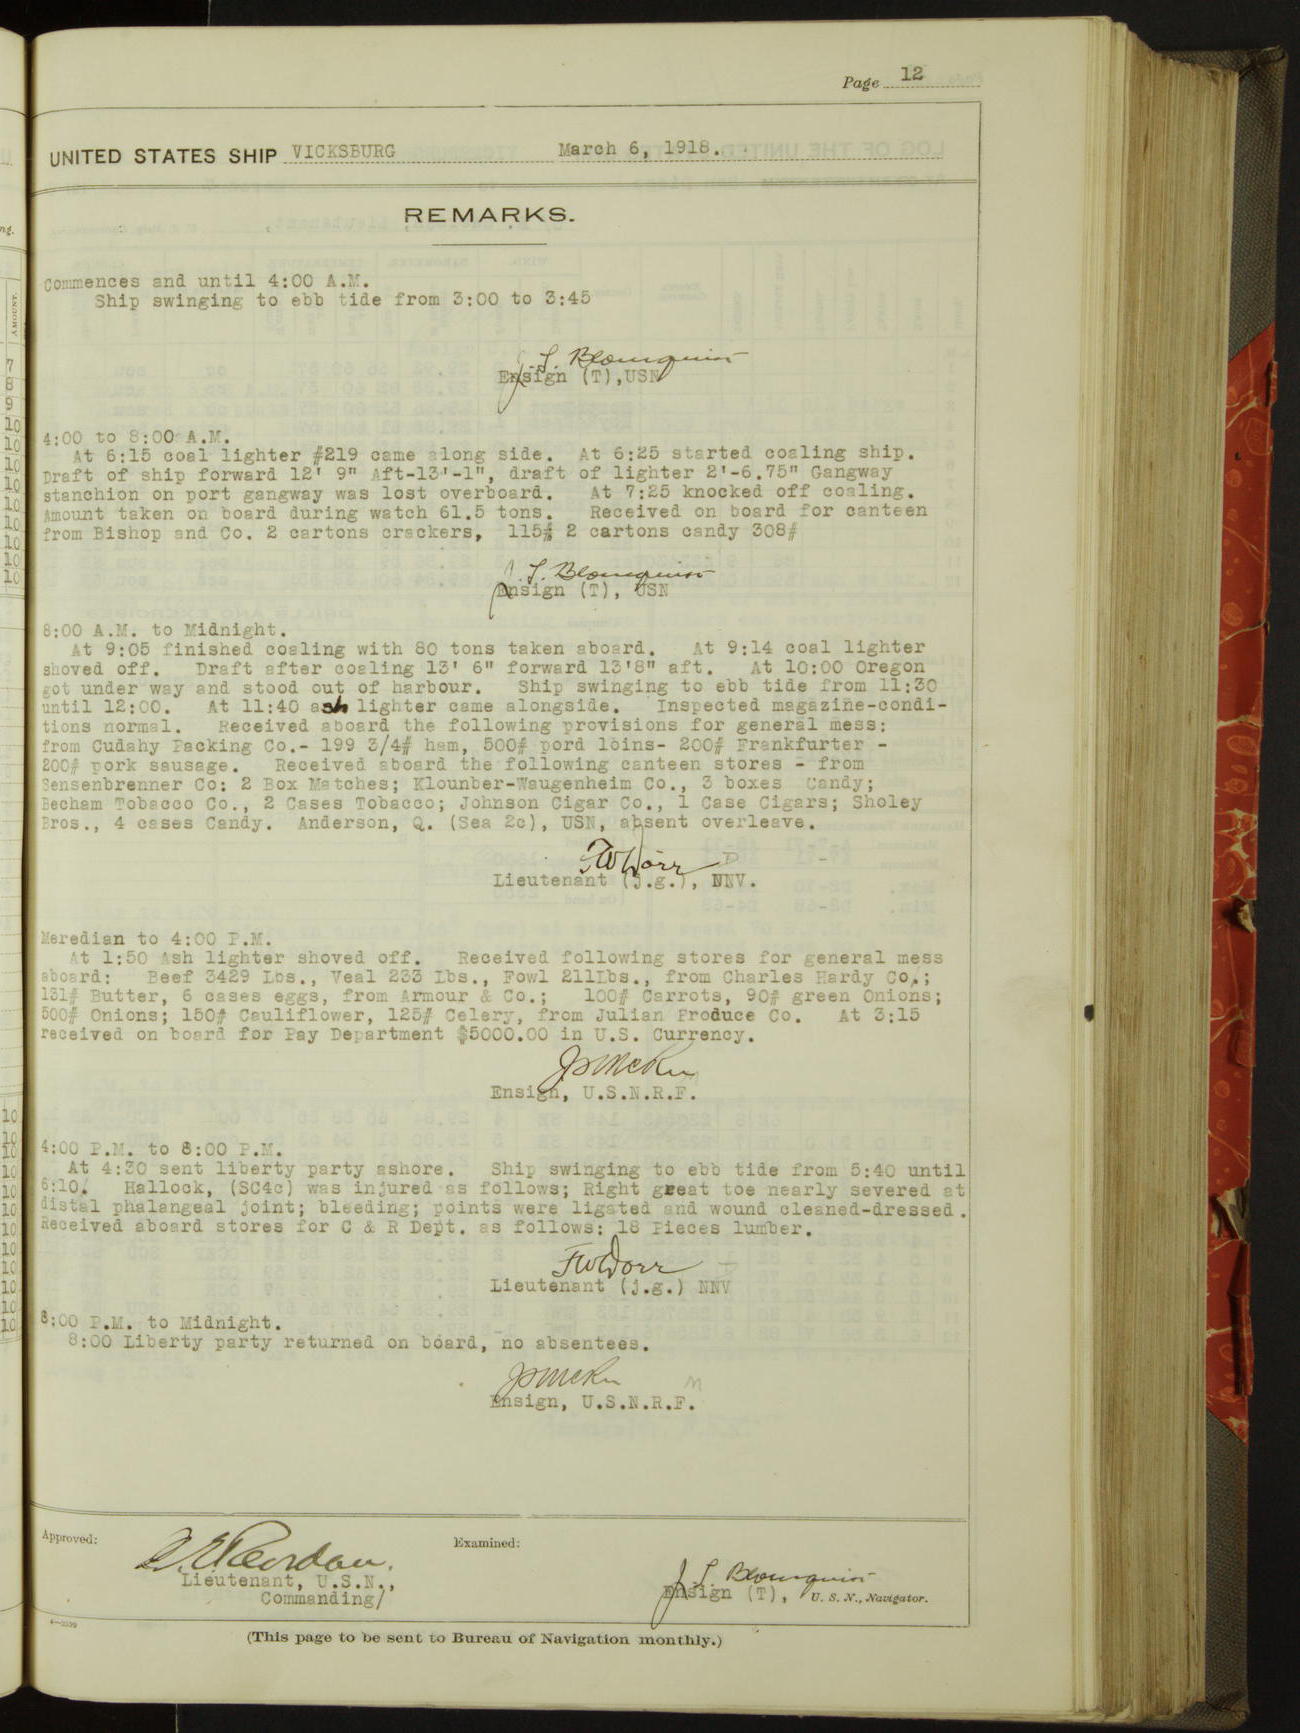 Page 12
UNITED STATES SHIP VICKSBURG March 6, 1918.
REMARKS.
Commences and until 4:00 A.M.
Ship swinging to ebb tide from 3:00 to 3:45
J. L. Blomquist
Ensign (T),USN
4:00 to 8:00 A.M.
At 6:15 coal lighter #219 came along side. At 6:25 started coaling ship.
Draft of ship forward 12' 9" Aft-13'-1", draft of lighter 2'-6.75" Gangway
stanchion on port gangway was lost overboard. At 7:25 knocked off coaling.
Amount taken on board during watch 61.5 tons. Received on board for canteen
from Bishop and Co. 2 cartons crackers, 115# 2 cartons candy 308#
J. L. Blomquist
Ensign (T), USN
8:00 A.M. to Midnight.
At 9:05 finished coaling with 80 tons taken aboard. At 9:14 coal lighter
shoved off. Draft after coaling 13' 6" forward 13'8" aft. At 10:00 Oregon
got under way and stood out of harbour. Ship swinging to ebb tide from 11:30
until 12:00. At 11:40 ash lighter came alongside. Inspected magazine-condi-
tions normal. Received aboard the following provisions for general mess:
from Cudahy Packing Co.- 199 3/4# ham, 500# pord loins- 200# Frankfurter -
200# pork sausage. Received aboard the following canteen stores - from
Sensenbrenner Co: 2 Box Matches; Klounber-Waugenheim Co., 3 boxes Candy;
Becham Tobacco Co., 2 Cases Tobacco; Johnson Cigar Co., 1 Case Cigars; Sholey
Bros., 4 cases Candy. Anderson, Q. (Sea 2c), USN, absent overleave.
F W Dorr
Lieutenant (j.g.), NNV.
Meredian to 4:00 P.M.
At 1:50 Ash lighter shoved off. Received following stores for general mess
aboard: Beef 3429 Lbs., Veal 233 Lbs., Fowl 211Lbs., from Charles Hardy Co.;
131# Butter, 6 cases eggs, from Armour & Co.; 100# Carrots, 90# green Onions;
500# Onions; 150# Cauliflower, 125# Celery, from Julian Produce Co. At 3:15
received on board for Pay Department $5000.00 in U.S. Currency.
Ensign, U.S.N.R.F.
4:00 P.M. to 8:00 P.M.
At 4:30 sent liberty party ashore. Ship swinging to ebb tide from 5:40 until
6:10. Hallock, (SC4c) was injured as follows; Right great toe nearly severed at
distal phalangeal joint; bleeding; points were ligated and wound cleaned-dressed.
Received aboard stores for C & R Dept. as follows: 18 Pieces lumber.
F W Dorr
Lieutenant (j.g.) NNV
8:00 P.M. to Midnight.
8:00 Liberty party returned on board, no absentees.
Ensign, U.S.N.R.F.
Approved:
Examined:
Lieutenant, U.S.N.,
Commanding/
J. L. Blomquist
Ensign (T), U. S. N., Navigator.
(This page to be sent to Bureau of Navigation monthly.)